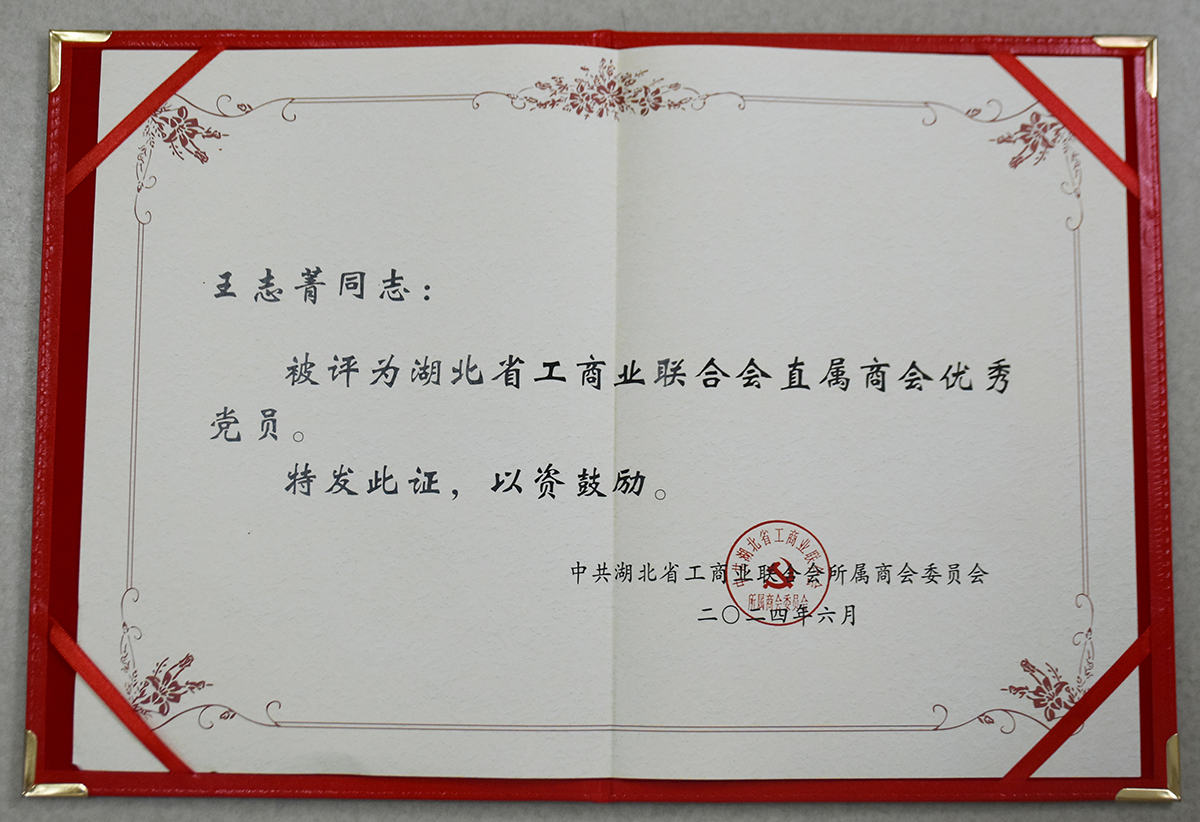 王志菁同志：
被评为湖北省工商业联合会直属商会优秀
党员。
特发此证，以资鼓励。
中共湖北省工商业联合会所属商会委员会
二〇二四年六月
中共湖北省工商业联合会
所属商会委员会